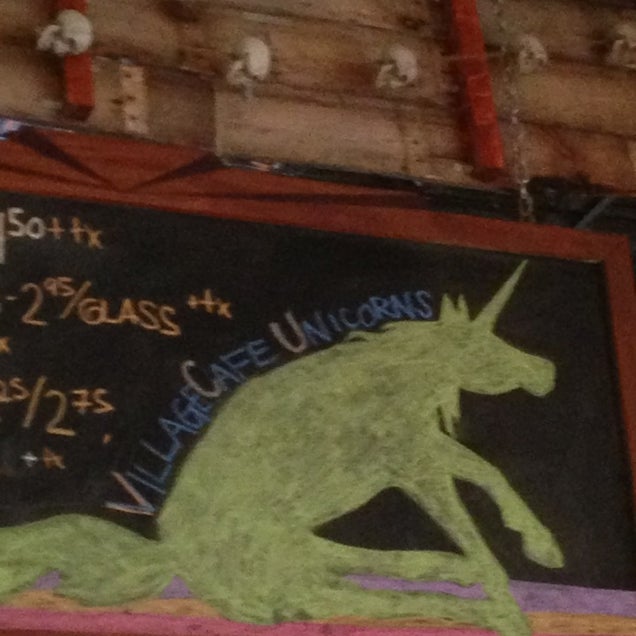 50++x
-2 95/GLASS ++x
x
25/2 75,
++x
VILLAGE CAFE UNICORNS